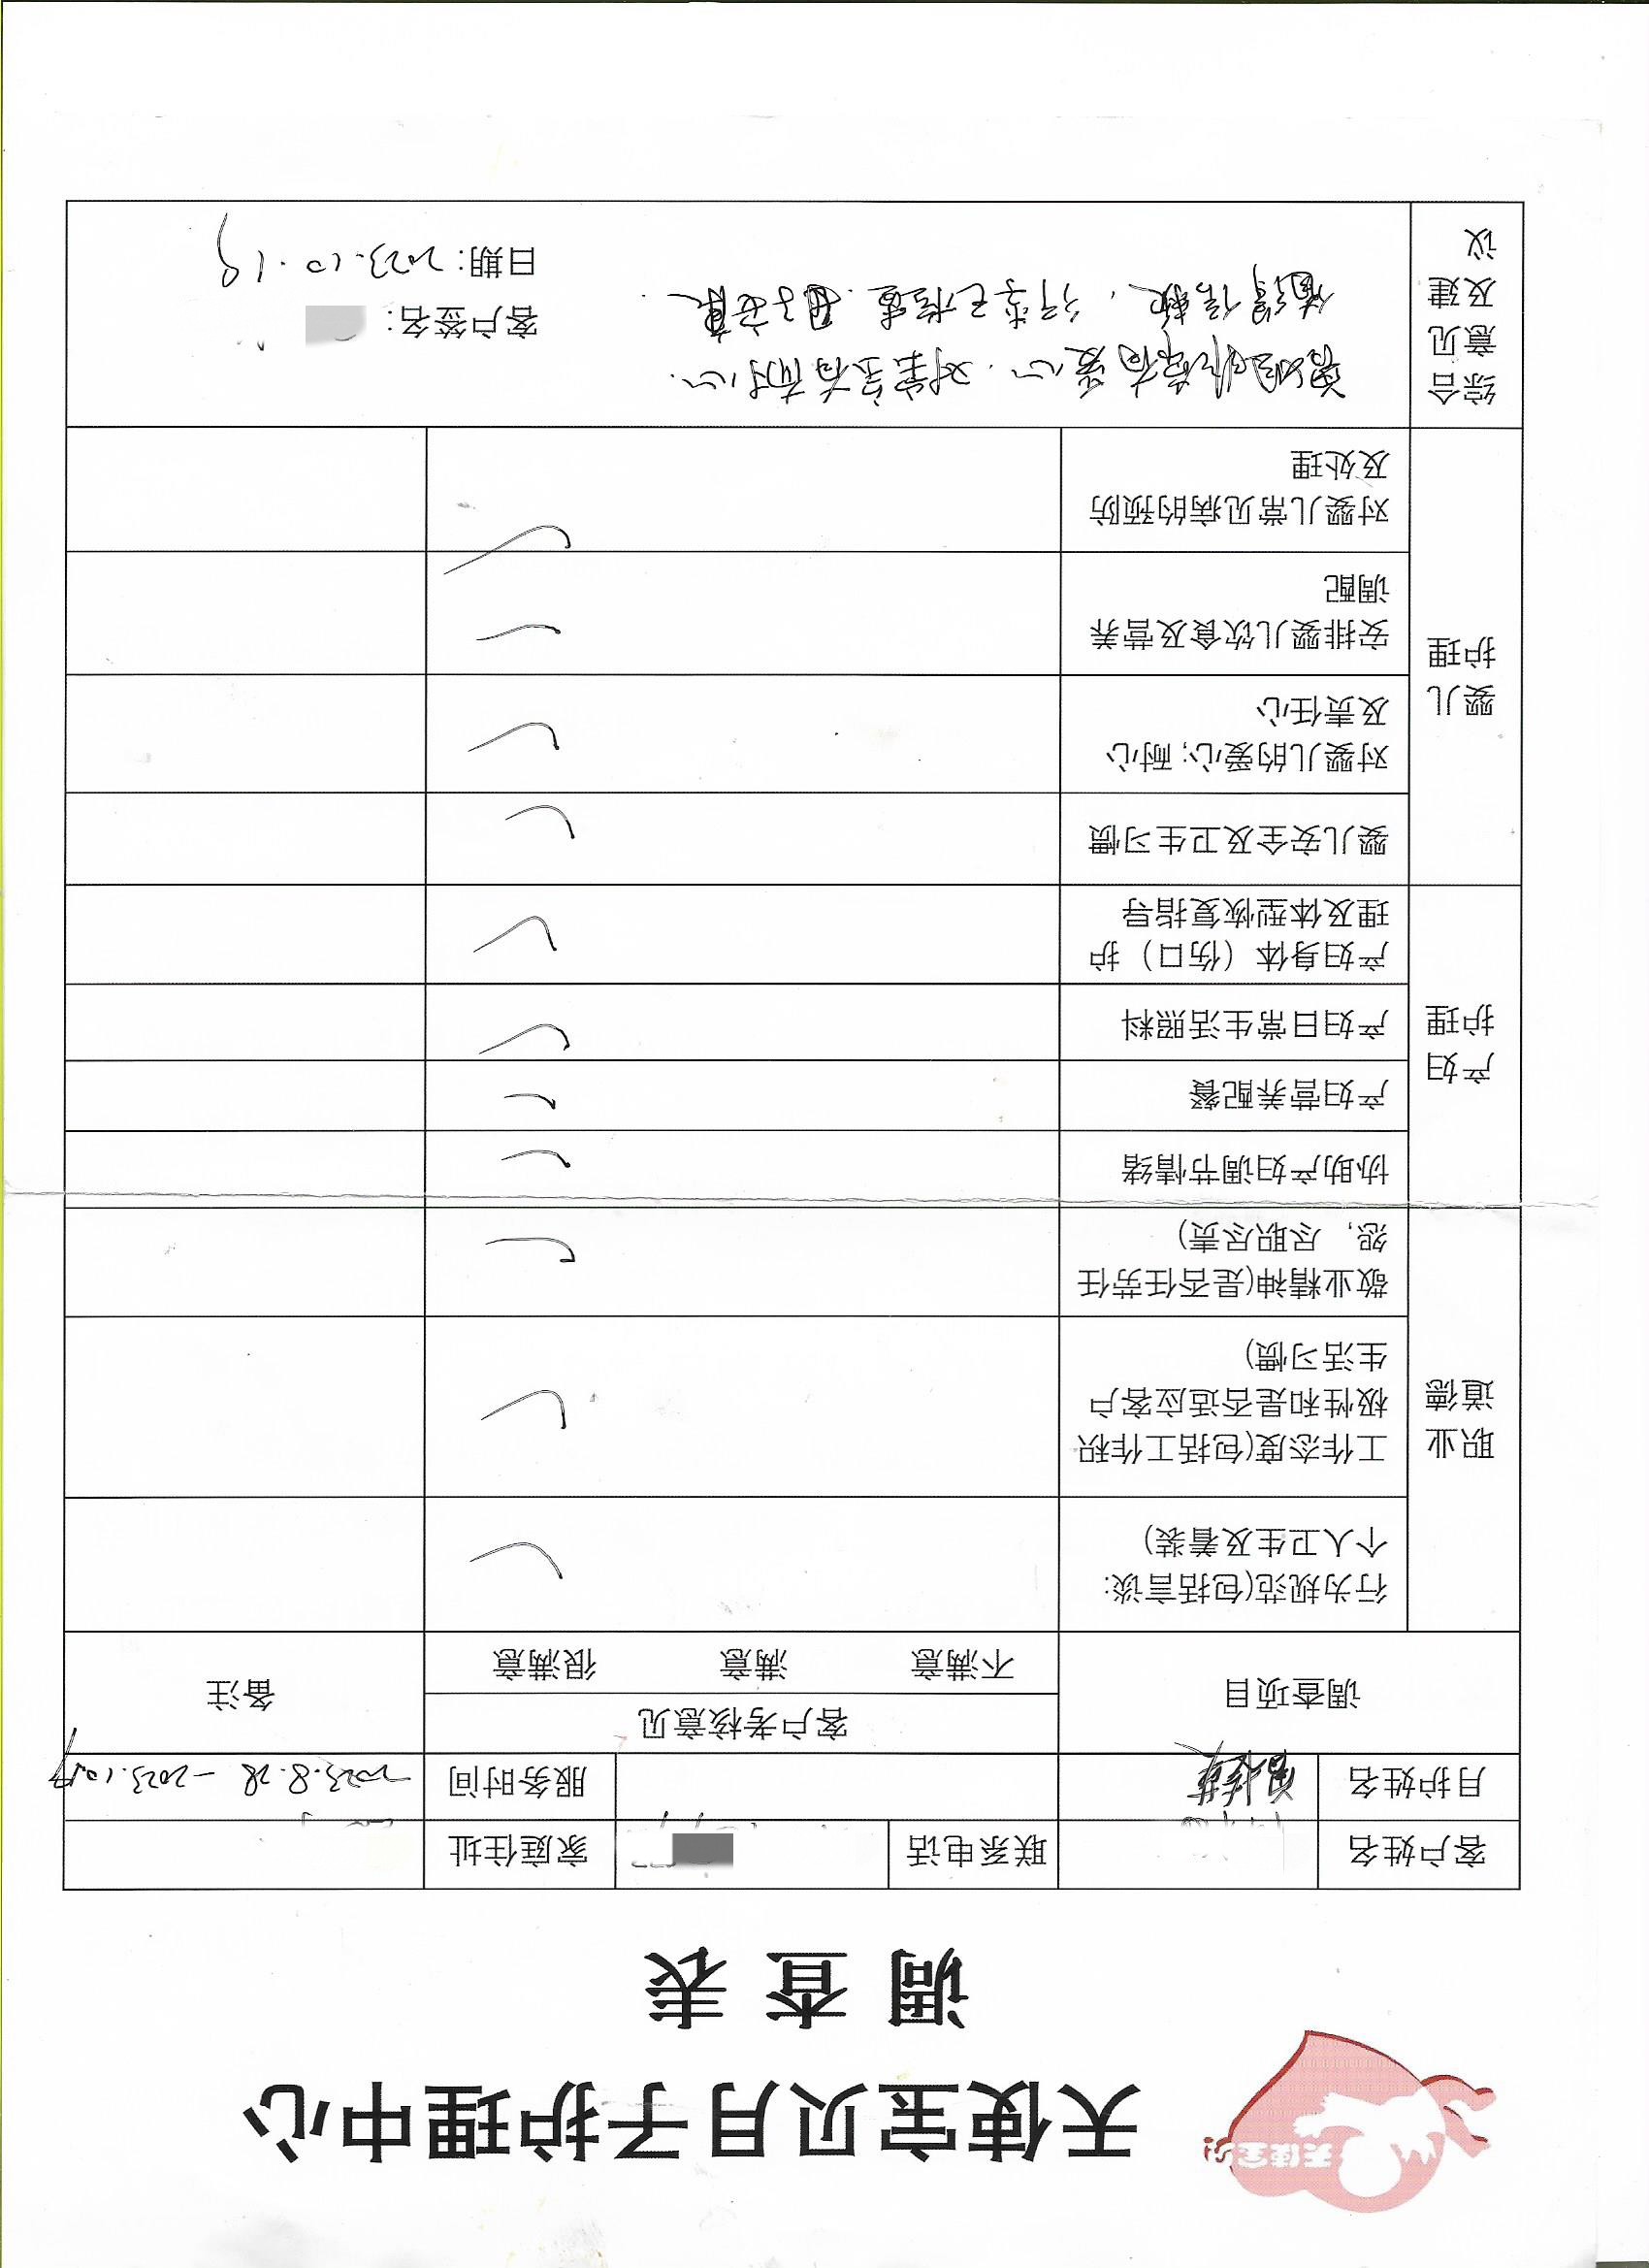 天使宝贝
天使宝贝月子护理中心
调查表
客户姓名 联系电话 家庭住址
月护姓名 服务时间 2023.8.28-2023.10.19
调查项目 客户考核意见 备注
不满意 满意 很满意
职业
道德
行为规范(包括言谈:
个人卫生及着装)
工作态度(包括工作积
极性和是否适应客户
生活习惯)
敬业精神(是否任劳任
怨,尽职尽责)
产妇
护理
协助产妇调节情绪
产妇营养配餐
产妇日常生活照料
产妇身体(伤口)护
理及体型恢复指导
婴儿
护理
婴儿安全及卫生习惯
对婴儿的爱心;耐心
及责任心
安排婴儿饮食及营养
调配
对婴儿常见病的预防
及处理
综合
意见
及建
议
非常有爱心,对宝宝有耐心.
值得信赖,
客户签名:
日期:2023.10.19